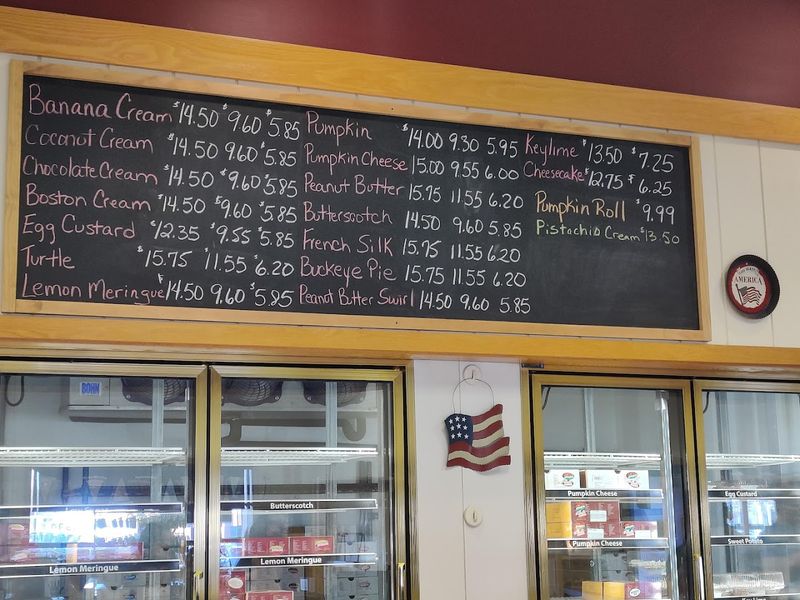 Banana Cream $14.50 $9.60 $5.85
Coconut Cream $14.50 9.60 $5.85
Chocolate Cream $14.50 $9.60 $5.85
Boston Cream $14.50 $9.60 $5.85
Egg Custard $12.35 $9.55 $5.85
Turtle $15.75 $11.55 $6.20
Lemon Meringue $14.50 9.60 $5.85
Pumpkin $14.00 9.30 5.95
Pumpkin Cheese 15.00 9.55 6.00
Peanut Butter 15.75 11.55 6.20
Butterscotch 14.50 9.60 5.85
French Silk 15.75 11.55 6.20
Buckeye Pie 15.75 11.55 6.20
Peanut Butter Swirl 14.50 9.60 5.85
Keylime $13.50 $7.25
Cheesecake $12.75 $6.25
Pumpkin Roll $9.99
Pistachio Cream $13.50
AMERICA
BOHN
Butterscotch
Lemon Meringue
Lemon Meringue
Pumpkin Cheese
Pumpkin Cheese
Egg Custard
Sweet Potato
Key Lime